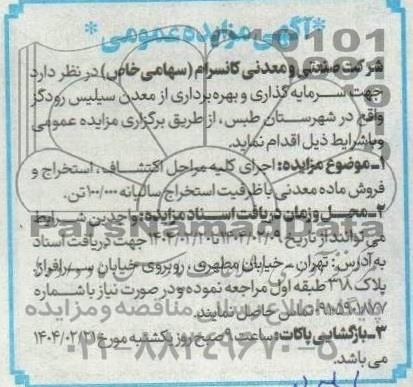 *آگهی مزایده عمومی*
شرکت صنعتی و معدنی کانسرام (سهامی خاص) در نظر دارد
جهت سرمایه گذاری و بهره برداری از معدن سیلیس رودگز
واقع در شهرستان طبس، از طریق برگزاری مزایده عمومی
وباشرایط ذیل اقدام نماید.
۱_موضوع مزایده: اجرای کلیه مراحل اکتشاف، استخراج و
فروش ماده معدنی با ظرفیت استخراج سالیانه ۱۰۰/۰۰۰ تن.
۲_محل و زمان دریافت اسناد مزایده: واجدین شرایط
می توانند از تاریخ ۱۴۰۴/۰۲/۰۹ تا ۱۴۰۴/۰۲/۲۰ جهت دریافت اسناد
به آدرس: تهران_ خیابان مطهری، روبروی خیابان سرافراز،
پلاک ۳۱۸ طبقه اول مراجعه نموده و در صورت نیاز با شماره
۰۹۱۰۵۹۰۱۸۷۷ تماس حاصل نمایند.
۳_بازگشایی پاکات: ساعت ۹ صبح روز یکشنبه مورخ ۱۴۰۴/۰۲/۲۱
می باشد.
ParsNamadData
پایگاه اطلاع رسانی مناقصه و مزایده
۰۲۱-۸۸۳۴۹۶۷۰-۵